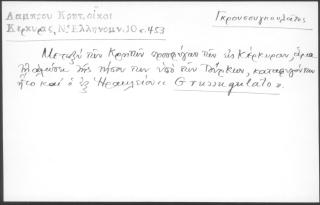 Λαμπρου Κρητ. οἶκοι
Κερκυρας, Ν. Ἑλληνομν. 10 σ. 453
Γκρουσουγκουλάτος
Μεταξὺ τῶν Κρητῶν προσφύγων τῶν εἰς Κέρκυραν, ἅμα
τῇ ἁλώσει τῆς νήσου των ὑπὸ τῶν Τούρκων, καταφυγόντων
ἦτο καὶ ὁ ἐξ Ἡρακλείου « Grussugulato ».